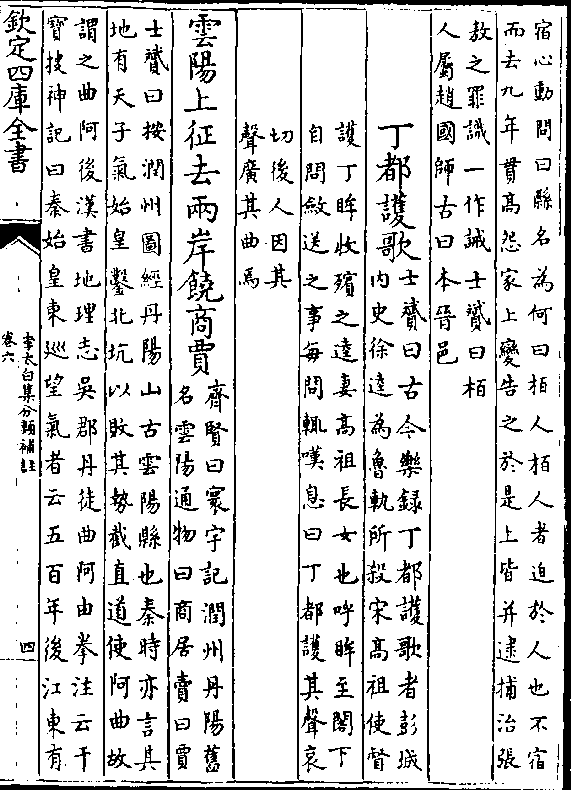 宿心動問曰縣名為何曰栢人栢人者迫於人也不宿
而去九年貫高怨家上變告之於是上皆并逮捕治張
敖之罪識一作誠士贇曰栢
人屬趙國師古曰本晉邑
丁都護歌
士贇曰古今樂録丁都護歌者彭城
内史徐逵為魯軌所殺宋髙祖使督
護丁旿收殯之逵妻髙祖長女也呼旿至閣下
自問斂送之事毎問輒嘆息曰丁都護其聲哀
切後人因其
聲廣其曲焉
雲陽上征去兩岸饒商賈
齊賢曰寰宇記潤州丹陽舊
名雲陽通物曰商居賣曰賈
士贇曰按潤州圖經丹陽山古雲陽縣也秦時亦言其
地有天子氣始皇鑿北坑以敗其勢截直道使阿曲故
謂之曲阿後漢書地理志吳郡丹徒曲阿由拳注云干
寳搜神記曰秦始皇東巡望氣者云五百年後江東有
欽定四庫全書
李太白集分類補註
卷六
四